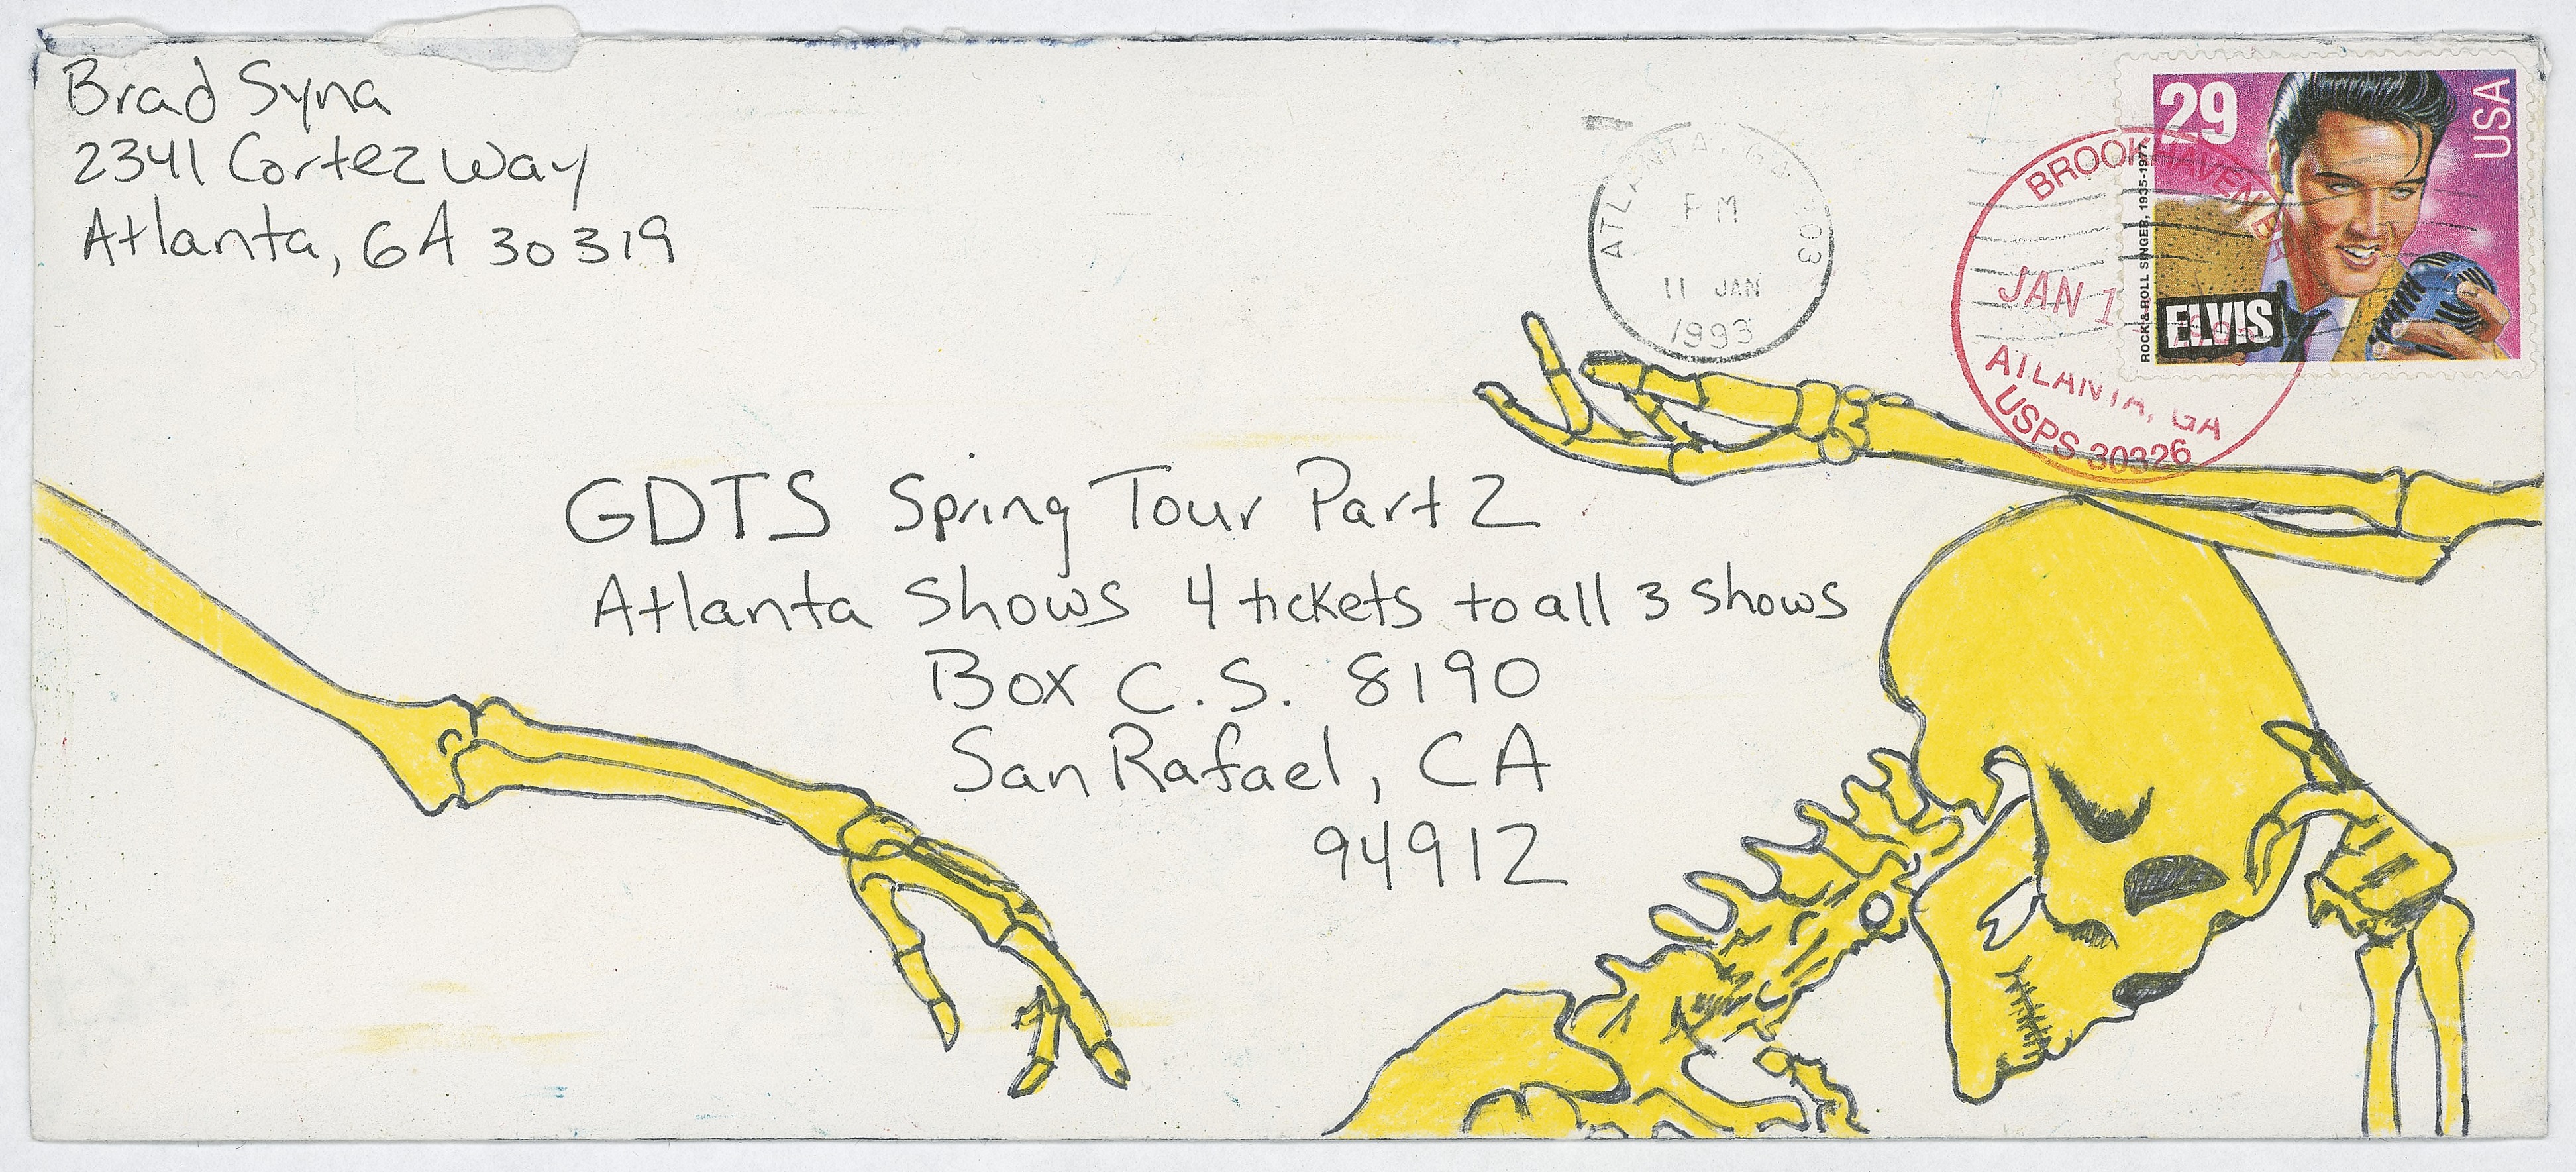 Brad Syna
2341 Cortez Way
Atlanta, GA 30319
ATLANTA, GA 303
PM
11 JAN
1993
BROOKHAVEN
JAN 1
ATLANTA, GA
USPS 30326
29
USA
ROCK & ROLL SINGER, 1935-1977
ELVIS
GDTS Spring Tour Part 2
Atlanta Shows 4 tickets to all 3 shows
Box C.S. 8190
San Rafael, CA
94912